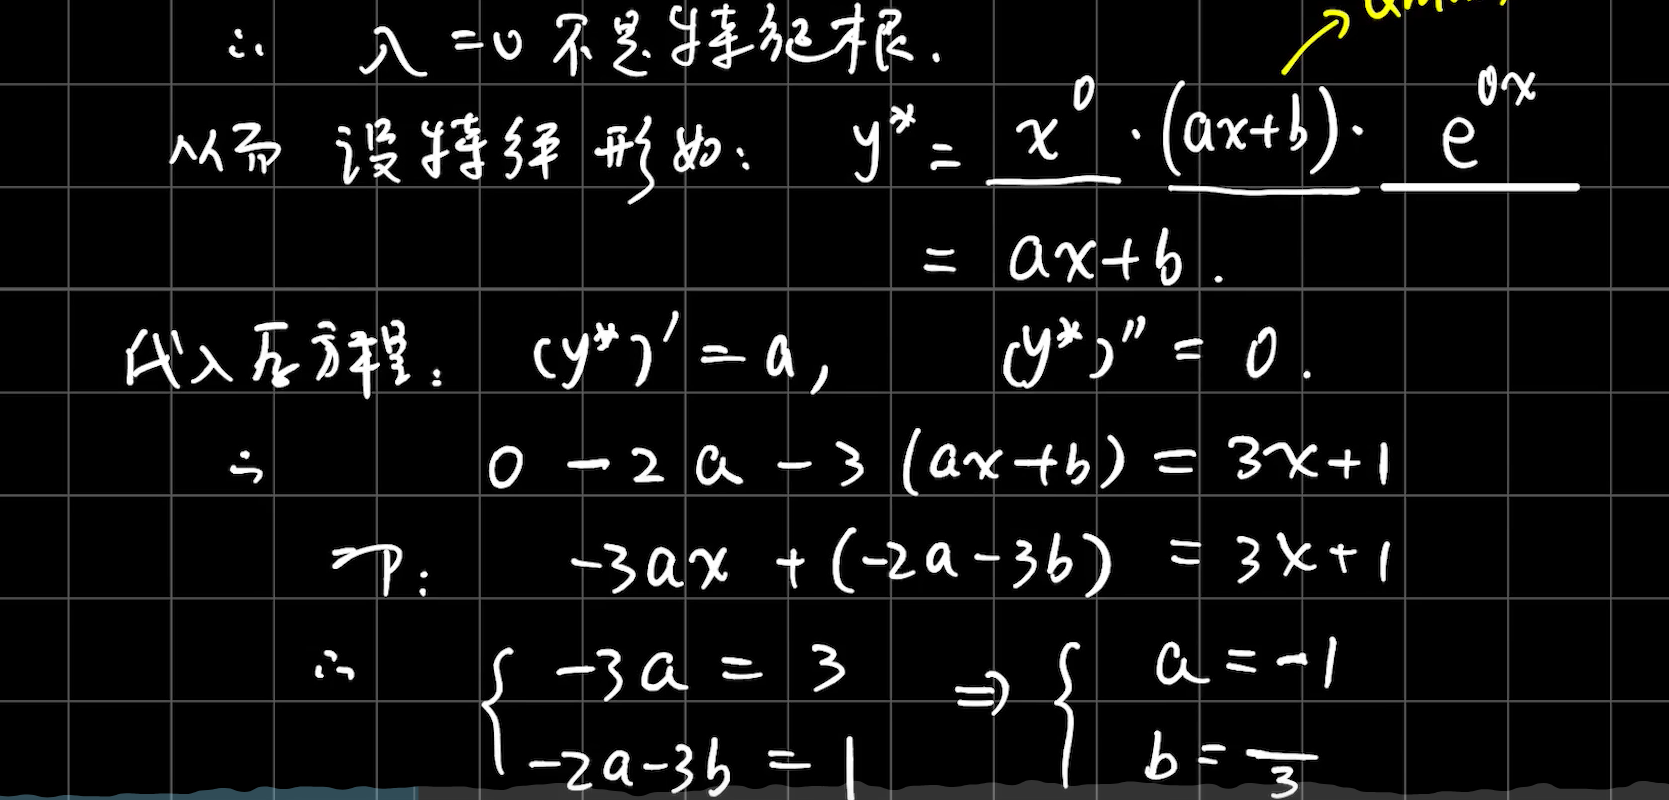 ∴ λ = 0 不是特征根.
从而 设特解形如: y* = x⁰ · (ax+b) · e^{0x}
= ax+b .
代入原方程: (y*)′ = a, (y*)″ = 0.
∴ 0 - 2a - 3(ax+b) = 3x+1
即: -3ax + (-2a-3b) = 3x+1
∴ { -3a = 3 ⇒ { a = -1
-2a-3b = 1 b = /3